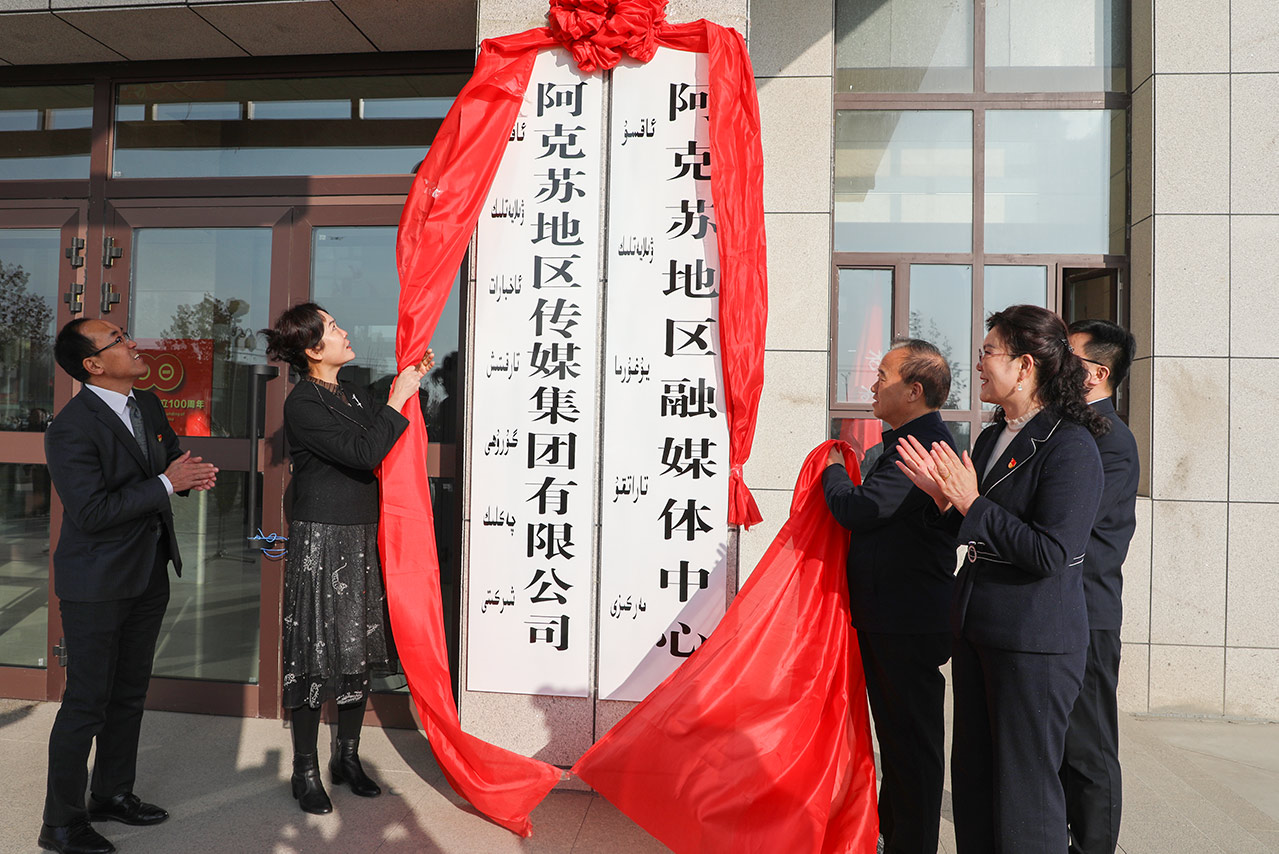 阿克苏地区传媒集团有限公司
ۋىلايەتلىك ئاخبارات تارقىتىش گۇرۇھى چەكلىك شىركىتى
阿克苏地区融媒体中心
ئاقسۇ ۋىلايەتلىك يۇغۇرما تاراتقۇ مەركىزى
立100周年